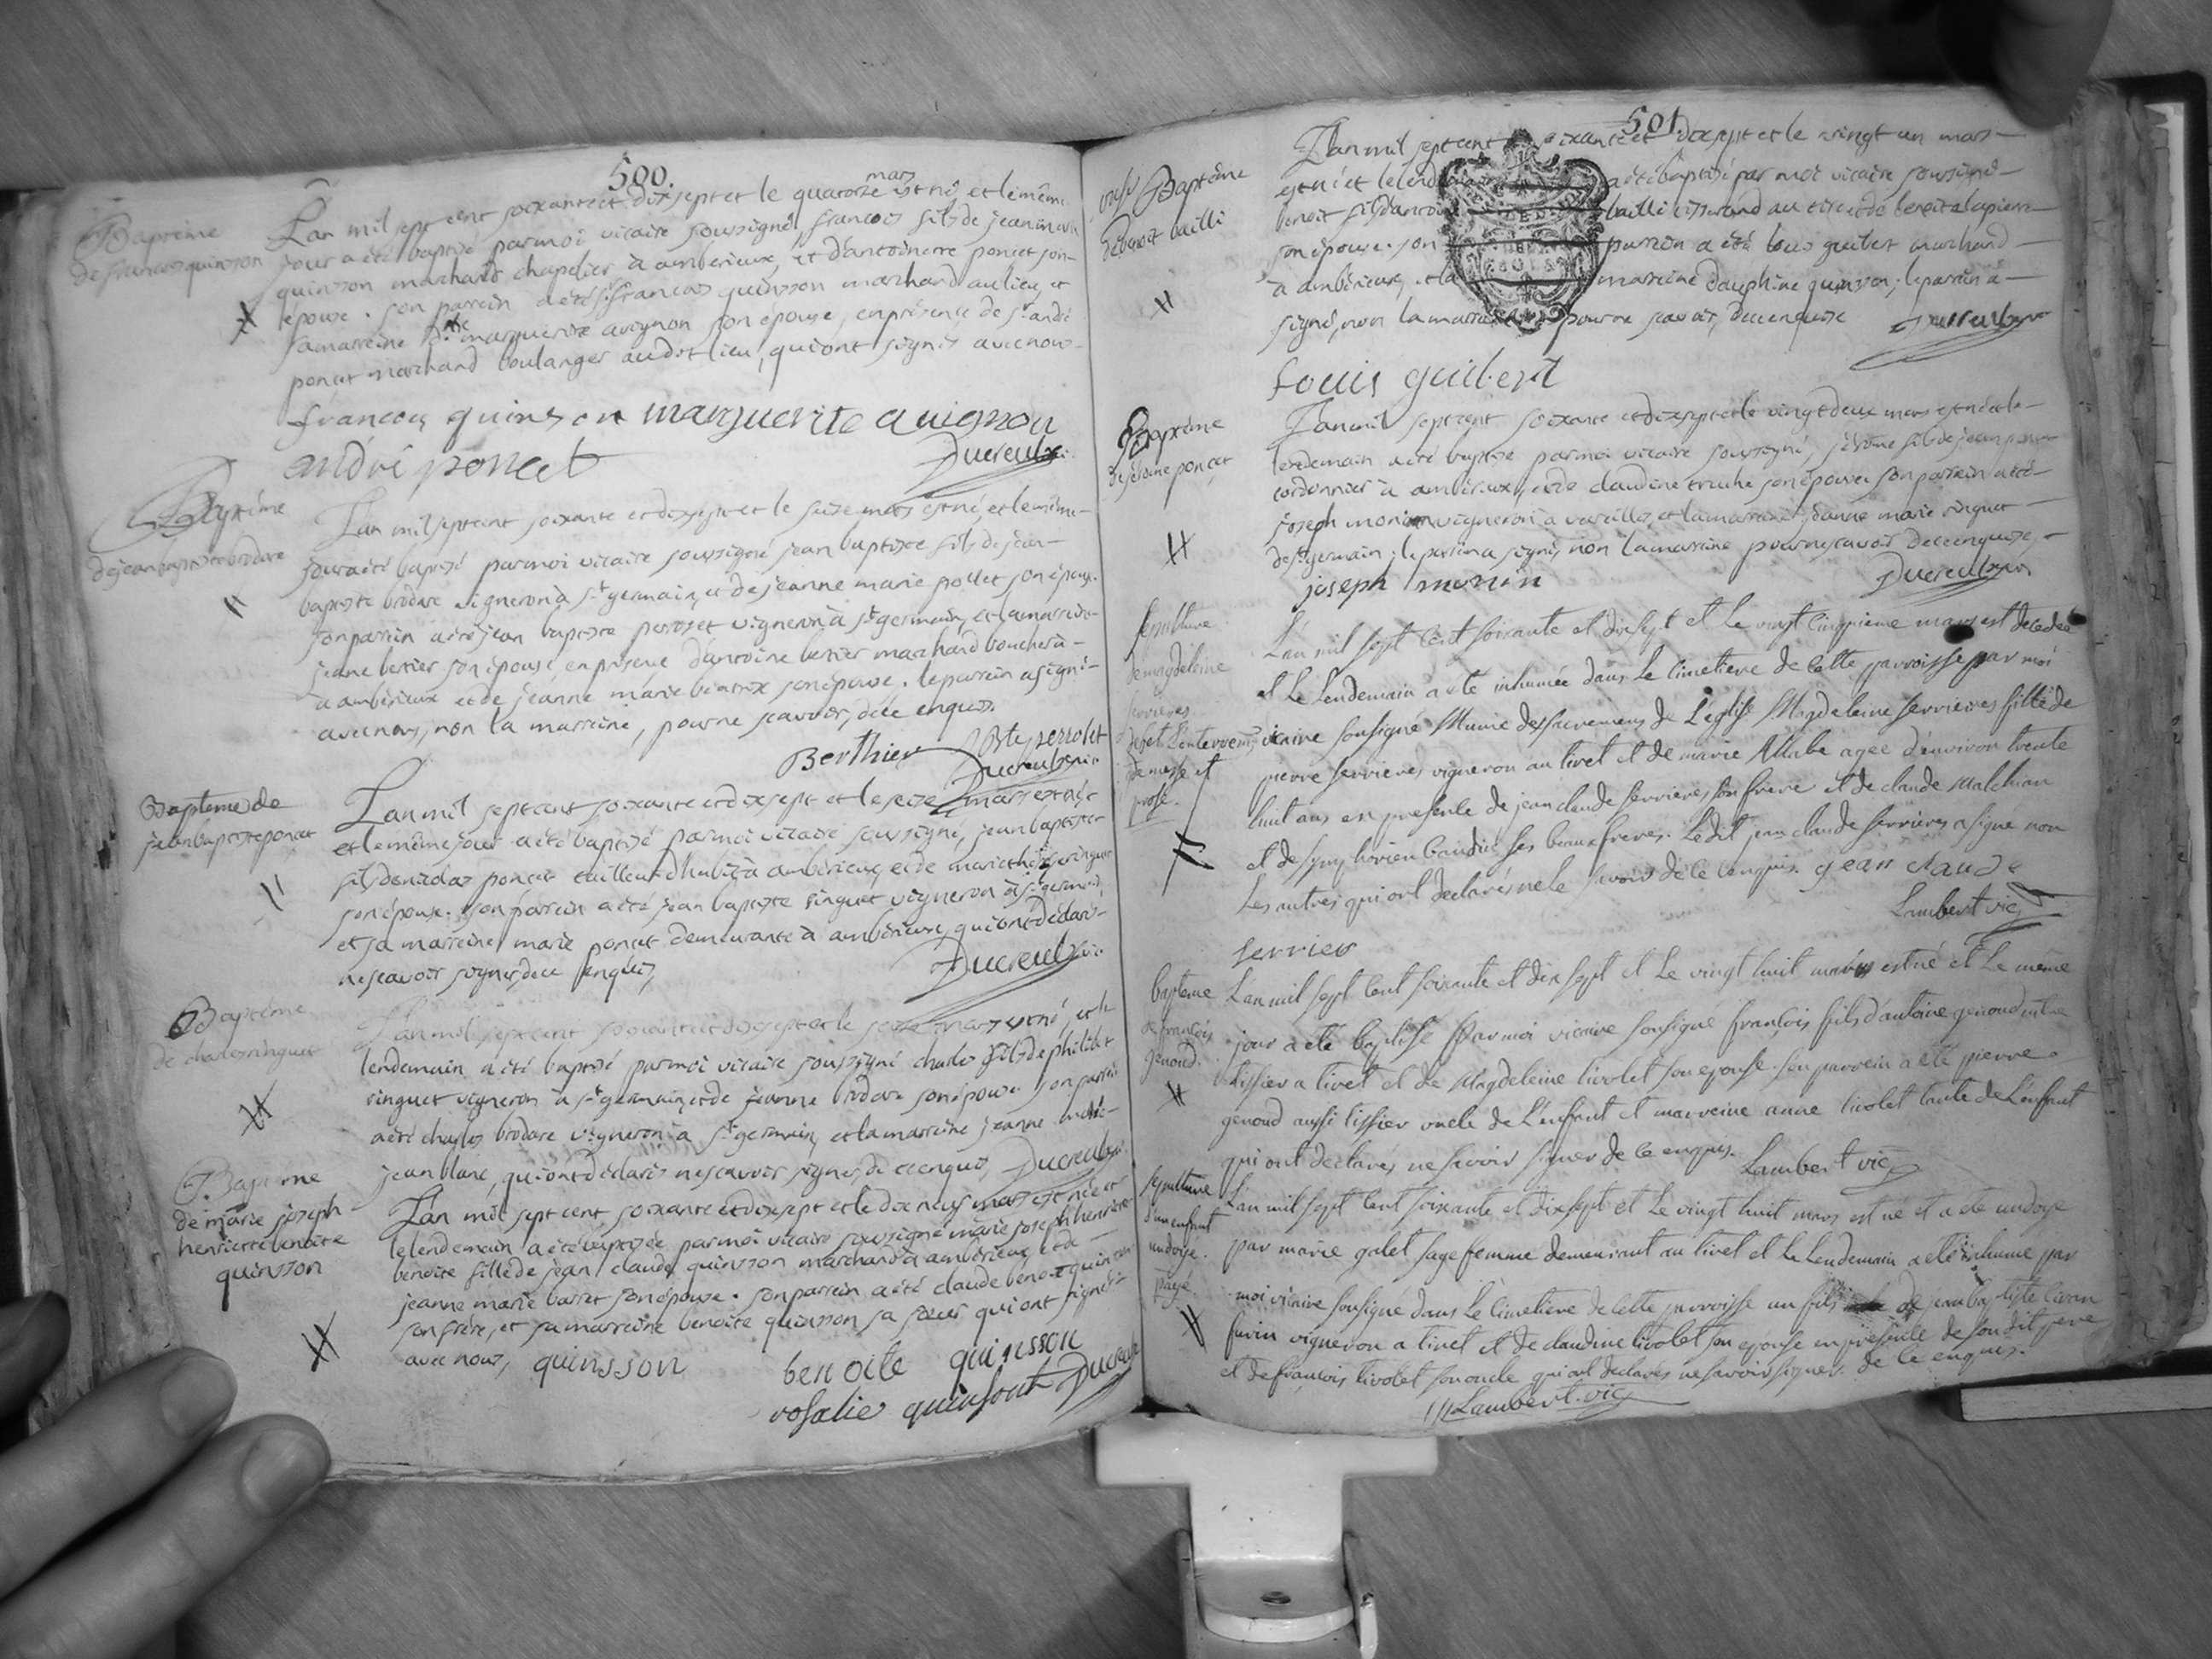 500.
Baptême
de francois quinson
L'an mil sept cent soixante et dix sept et le quatorze mars est né, et le même
jour a été baptisé par moi vicaire soussigné, francois fils de jean marie
quinson marchand chapelier à amberieux, et d'antoinette poncet son
epouse. son parrein a été sr. francois quinson marchand au lieu, et
sa marreine marguerite avignon son epouse, en présence de sr. andré
poncet marchand boulanger audit lieu, qui ont signés avec nous
francois quinson marguerite avignon
andré poncet
Ducreulx
Baptême
de jean baptiste brodare
L'an mil sept cent soixante et dix sept et le seize mars est né, et le même
jour a été baptisé par moi vicaire soussigné jean baptiste fils de jean
baptiste brodare vigneron à st germain, et de jeanne marie pollet son épouse.
son parrein a été jean baptiste perroset vigneron à st germain, et la marreine
jeane bertier son épouse, en présence d'antoine bertier marchand boucher à
à ambérieux et de jeanne marie béatrix son épouse. le parrein a signé
avec nous, non la marreine, pour ne scavoir, de ce enquis.
Berthier
Ducreulx vic.
Baptême de
jean baptiste poncet
L'an mil sept cent soixante et dix sept et le seize mars est né
et le même jour a été baptisé par moi vicaire soussigné, jean baptiste
fils de nicolas poncet tailleur d'habits à ambérieux, et de marie ringuet
son épouse. son parrein a été jean baptiste ringuet vigneron à st germain,
et sa marreine marie poncet demeurante à ambérieux, qui ont déclaré
ne scavoir signer, de ce enquis,
Ducreulx vic.
Baptême
de charles ringuet
L'an mil sept cent soixante et dix sept et le seize mars est né, et le
lendemain a été baptisé par moi vicaire soussigné charles fils de philibert
ringuet vigneron à st germain, et de jeanne brodare son épouse son parrein
a été charles brodare vigneron à st germain, et la marreine jeanne
jean blanc, qui ont déclarés ne scavoir signer, de ce enquis, Ducreulx
Baptême
de marie joseph
henriette benoite
quinson
L'an mil sept cent soixante et dix sept et le dix neuf mars est née et
le lendemain a été baptisée par moi vicaire soussigné marie joseph henriette
benoite fille de jean claude quinsson marchand à ambérieux, et de
jeanne marie barret son épouse. son parrein a été claude benoit quinsson
son frère, et sa marreine benoite quinsson sa sœur qui ont signés
avec nous, quinsson benoite quinsson
rosalie quinsont Ducreulx
501.
Baptême
de benoit bailli
L'an mil sept cent soixante et dix sept et le vingt un mars
est né et le lendemain a été baptisé par moi vicaire soussigné
benoit fils d'antoine bailli tisserand au et de benoite lapierre
son épouse. son parrein a été louis guibert marchand
à ambérieux, et la marreine dauphine quinsson; le parrein a
signé, non la marreine pour ne scavoir, de ce enquise Ducreulx
Louis guibert
Baptême
de jérôme poncet
L'an mil sept cent soixante et dix sept et le vingt deux mars est né et le
lendemain a été baptisé par moi vicaire soussigné, jérôme fils de jean poncet
cordonnier à ambérieux, et de claudine truche son épouse son parrein a été
joseph monin vigneron à vareilles, et la marreine jeanne marie ringuet
de st germain; le parrein a signé, non la marreine pour ne scavoir de ce enquise,
joseph monin
Ducreulx vic.
Sepulture
de magdeleine
serrieres
L'an mil sept cent soixante et dix sept et le vingt cinquieme mars est decedée
et le lendemain a été inhumée dans le cimetiere de cette parroisse par moi
vicaire sousigné Munie des sacremens de L'eglise Magdeleine serrieres fille de
pierre serrieres vigneron au tiret et de marie Allabe agée d'environ trente
huit ans en presence de jean claude serrieres son frere et de claude Malchian
et de symphorien baudin ses beaux freres. Ledit jean claude serrieres a signé non
Les autres qui ont declarés ne le savoir de ce enquis. jean claude
serrier
Lambert vic
bapteme
de françois
genoud.
L'an mil sept cent soixante et dix sept et le vingt huit mars est né et le même
jour a été baptisé par moi vicaire sousigné françois fils d'antoine genoud
tissier a tiret et de Magdeleine tivolet son epouse. son parrein a été pierre
genoud aussi tissier oncle de L'enfant et marreine anne tivolet tante de L'enfant
qui ont declarés ne savoir signer de ce enquis. Lambert vic
sepulture
d'un enfant
undoyé.
payé.
L'an mil sept cent soixante et dix sept et le vingt huit mars est né et a été undoyé
par marie galet sage femme demeurant au tiret et le lendemain a été inhumé par
moi vicaire sousigné dans le cimetiere de cette parroisse un fils de jean baptiste
vigneron a tiret et de claudine tivolet son epouse en presence de son dit pere
et de françois tivolet son oncle qui ont declarés ne savoir signer de ce enquis.
Lambert vic